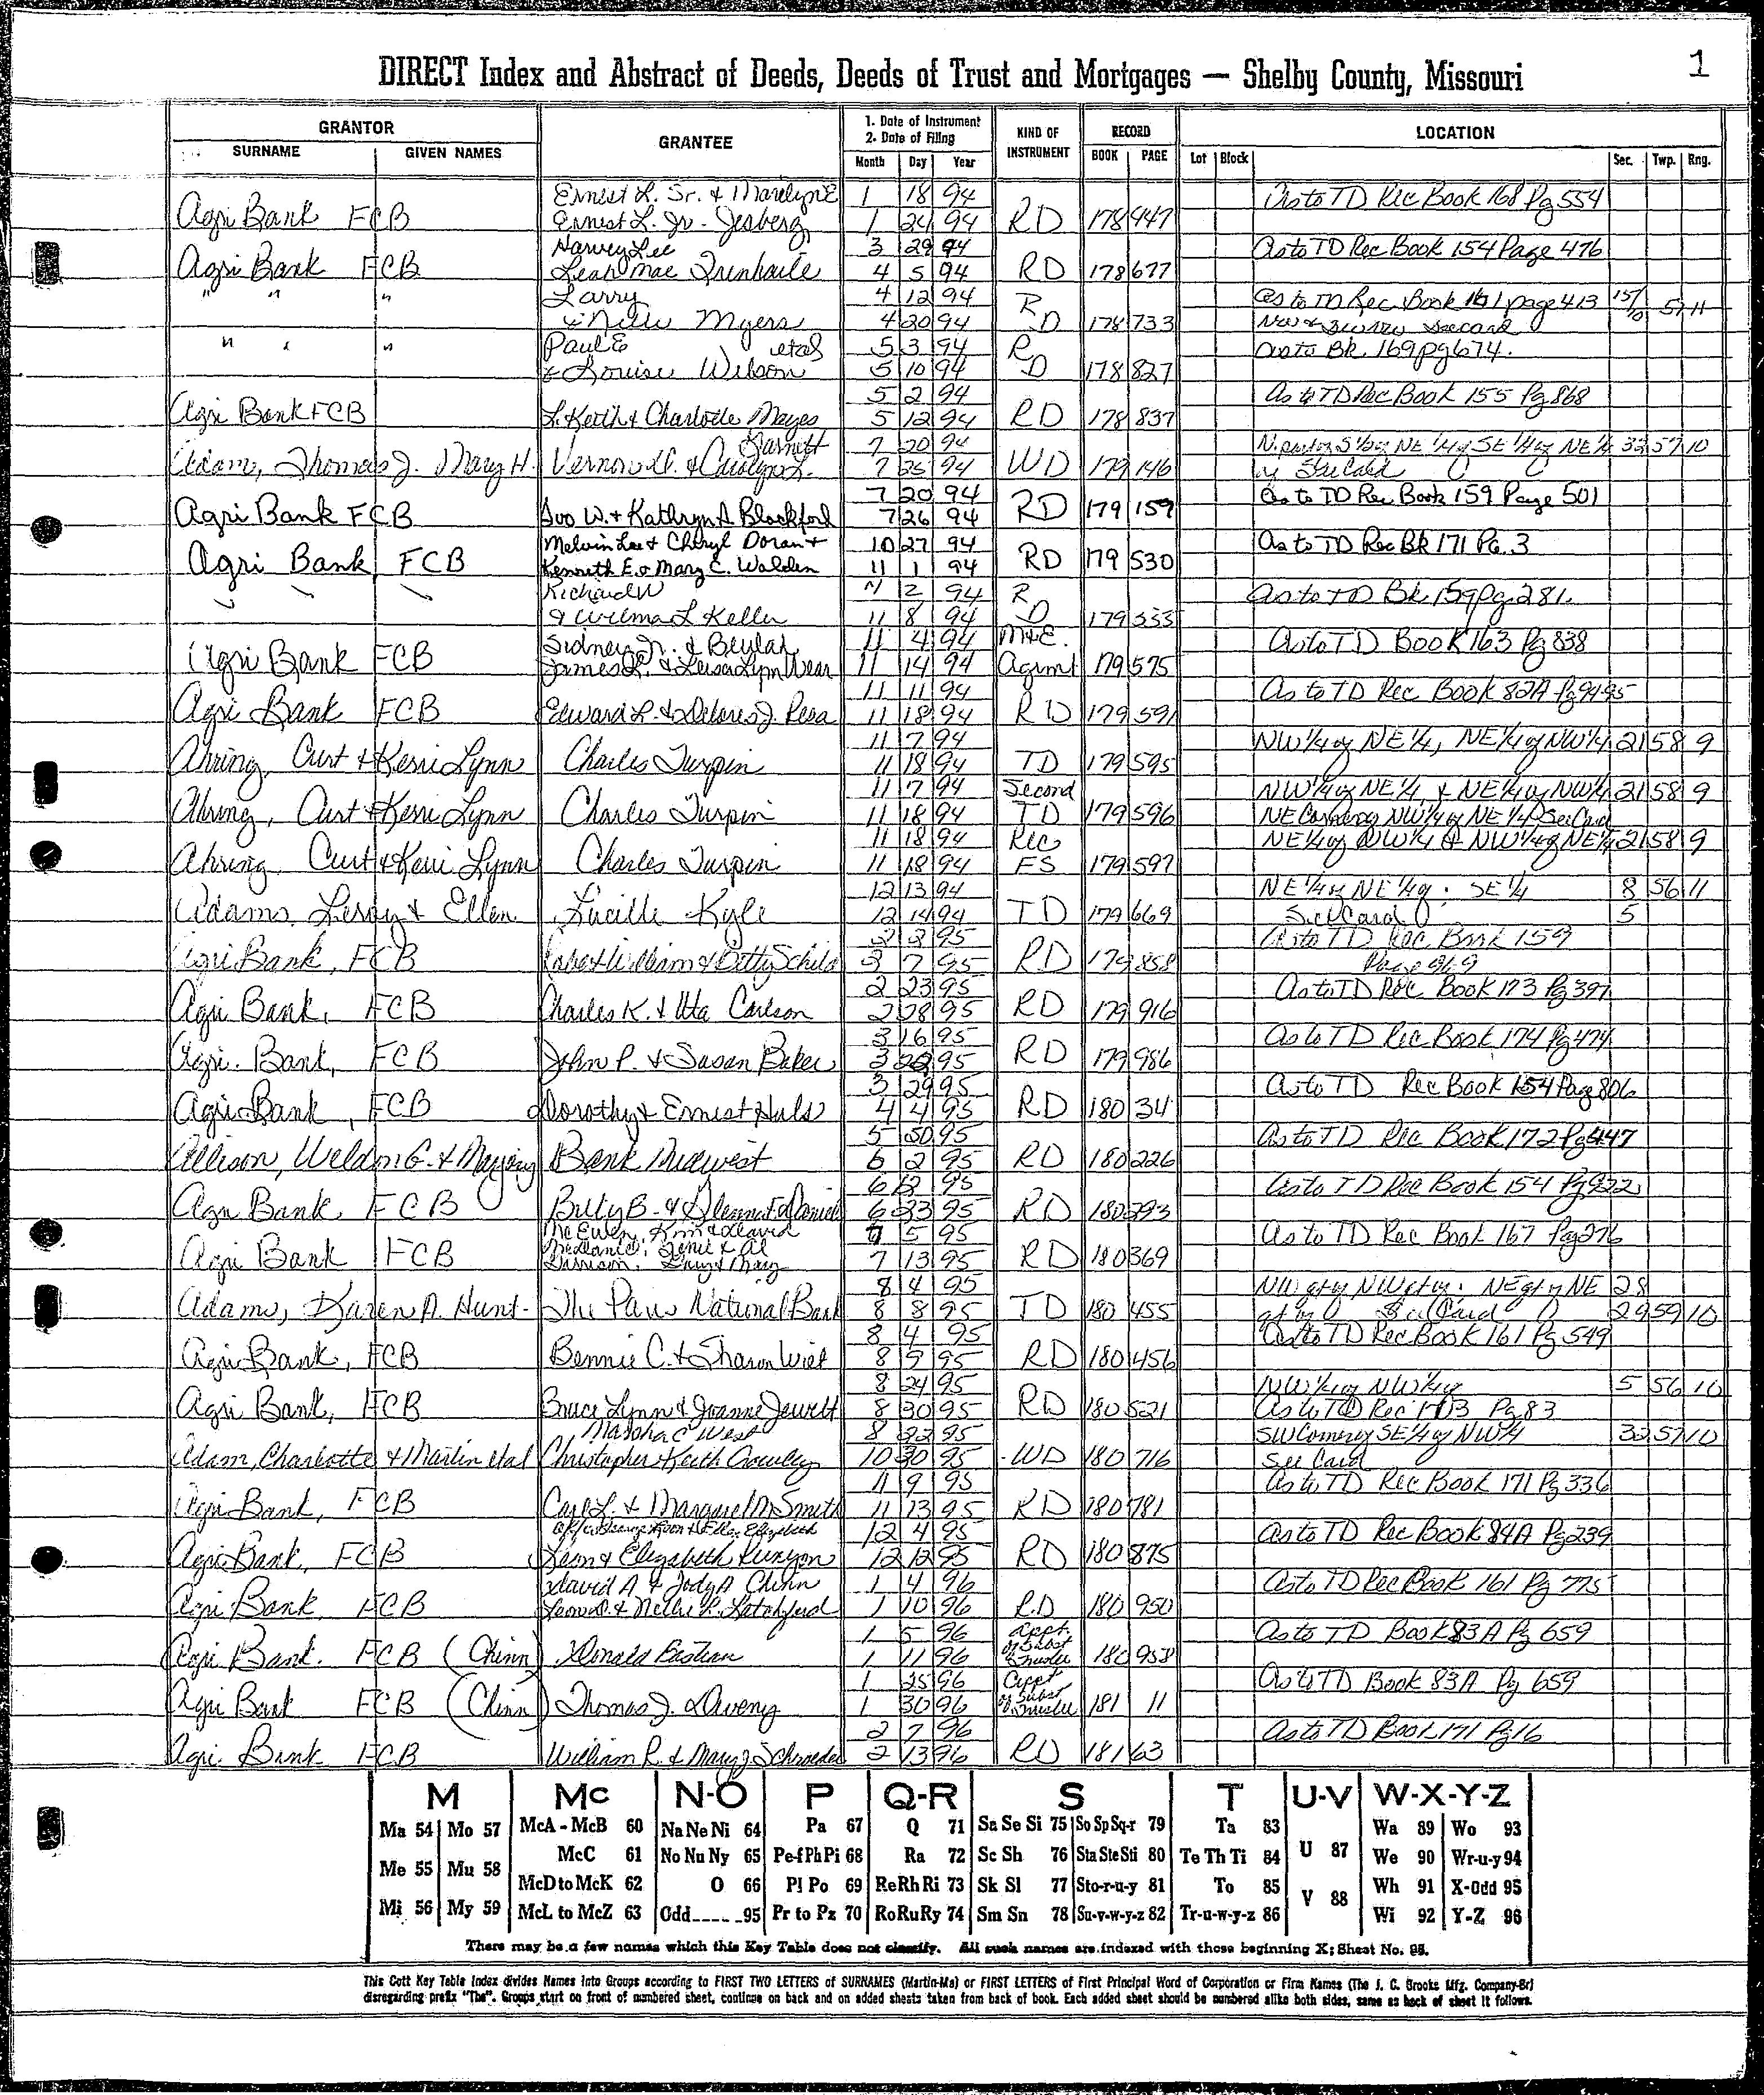 1
DIRECT Index and Abstract of Deeds, Deeds of Trust and Mortgages — Shelby County, Missouri
GRANTOR GRANTEE 1. Date of Instrument 2. Date of Filing KIND OF INSTRUMENT RECORD LOCATION
SURNAME GIVEN NAMES Month Day Year BOOK PAGE Lot Block Sec. Twp. Rng.
Ernest L. Sr. & 1 18 94 As to TD Rec Book 168 Pg 554
Agri Bank FCB Ernest L. Jr. 1 24 94 RD 178 447
Harvey Lee 3 29 94 As to TD Rec Book 154 Page 476
Agri Bank FCB Leah Mae 4 5 94 RD 178 677
" " " Larry 4 12 94 R As to TD Rec Book 161 page 413
& Myers 4 20 94 D 178 733 See card
" " " Paul E etal 5 3 94 R As to Bk. 169 pg 674.
& Louise Wilson 5 10 94 D 178 827
5 2 94 As to TD Rec Book 155 Pg 868
Agri Bank FCB L. Keith & Charlotte Mayes 5 12 94 RD 178 837
Garnett 7 20 94 33 57 10
Adams, Thomas J. Mary H. Vernon & Carolyn L. 7 25 94 WD 179 146 See Card
7 20 94 As to TD Rec Book 159 Page 501
Agri Bank FCB Ivo W. & Kathryn A Blackford 7 26 94 RD 179 159
Melvin Lee & Cheryl Doran & 10 27 94 As to TD Rec Bk 171 PG. 3
Agri Bank FCB Kenneth E & Mary C. Walden 11 1 94 RD 179 530
Richard W 2 94 R As to TD Bk 159 Pg 281.
& Wilma L Keller 11 8 94 D 179 553
Sidney Jr. & Beulah 11 4 94 M&E. As to TD Book 163 Pg 838
Agri Bank FCB James L. & Lynn Wear 11 14 94 Agrmt 179 575
11 11 94 As to TD Rec Book 82A Pg 94-95
Agri Bank FCB Edward L. & Delores J. 11 18 94 RD 179 591
11 7 94 NW 1/4 of NE 1/4, NE 1/4 of NW 1/4 21 58 9
Ahring, Curt & Kerri Lynn Charles Turpin 11 18 94 TD 179 595
11 7 94 Second NW 1/4 of NE 1/4 & NE 1/4 of NW 1/4 21 58 9
Ahring, Curt & Kerri Lynn Charles Turpin 11 18 94 TD 179 596 NE Corner of NW 1/4 of NE 1/4 See Card
11 18 94 Rec NE 1/4 of NW 1/4 & NW 1/4 of NE 1/4 21 58 9
Ahring, Curt & Kerri Lynn Charles Turpin 11 18 94 FS 179 597
12 13 94 NE 1/4 of NE 1/4 SE 1/4 8 56 11
Adams, Leroy & Ellen Lucille Kyle 12 14 94 TD 179 669 See Card 5
95 As to TD Rec Book 159
Agri Bank, FCB William & Betty Schild 7 95 RD 179 858 Page 969
2 23 95 As to TD Rec Book 173 Pg 397
Agri Bank, FCB Charles K. & Uta Carlson 2 28 95 RD 179 916
3 16 95 As to TD Rec Book 174 Pg 474
Agri. Bank, FCB John P. & Susan Baker 3 95 RD 179 986
3 29 95 As to TD Rec Book 154 Page 806
Agri Bank, FCB Dorothy & Ernest Huls 4 4 95 RD 180 34
5 30 95 As to TD Rec Book 172 Pg 447
Allison, Weldon G. & Bank Midwest 6 2 95 RD 180 226
6 95 As to TD Rec Book 154 Pg 922
Agri Bank FCB Billy B. & 6 23 95 RD 180 293
McEwen, Kim & David 5 95 As to TD Rec Book 167 Pg 276
Agri Bank FCB 7 13 95 RD 180 369
8 4 95 28
Adams, Karen A. Hunt- The Paris National Bank 8 8 95 TD 180 455 See Card 29 59 10
8 4 95 As to TD Rec Book 161 Pg 549
Agri Bank, FCB Bennie C. & Sharon 8 9 95 RD 180 456
8 24 95 NW 1/4 of NW 1/4 5 56 10
Agri Bank, FCB Bruce Lynn & Joanne Jewett 8 30 95 RD 180 521 As to TD Rec Pg 83
Marsha C West 8 22 95 SW Corner of SE 1/4 of NW 1/4 33 57 10
Adam, Charlotte & Martin etal Christopher Keith 10 30 95 WD 180 716 See Card
11 9 95 As to TD Rec Book 171 Pg 336
Agri Bank, FCB Carl L. & Margaret M Smith 11 13 95 RD 180 781
12 4 95 As to TD Rec Book 84A Pg 239
Agri Bank, FCB Leon & Elizabeth Runyon 12 12 95 RD 180 875
David A & Jody A Chinn 1 4 96 As to TD Rec Book 161 Pg 775
Agri Bank FCB & Nellie 1 10 96 RD 180 950
1 5 96 Appt. As to TD Book 83A Pg 659
Agri Bank. FCB (Chinn) Donald Bastian 1 11 96 of Subst Trustee 180 958
1 25 96 Appt As to TD Book 83A Pg 659
Agri Bank FCB (Chinn) Thomas J. 1 30 96 of Subst Trustee 181 11
2 7 96 As to TD Book 171 Pg 16
Agri Bank FCB William R. & Mary J Schroeder 2 13 96 RD 181 63
M Mc N-O P Q-R S T U-V W-X-Y-Z
Ma 54 Mo 57 McA - McB 60 Na Ne Ni 64 Pa 67 Q 71 Sa Se Si 75 So Sp Sq-r 79 Ta 83 Wa 89 Wo 93
Me 55 Mu 58 McC 61 No Nu Ny 65 Pe-f Ph Pi 68 Ra 72 Sc Sh 76 Sta Ste Sti 80 Te Th Ti 84 U 87 We 90 Wr-u-y 94
McD to McK 62 O 66 Pl Po 69 Re Rh Ri 73 Sk Sl 77 Sto-r-u-y 81 To 85 V 88 Wh 91 X-Odd 95
Mi 56 My 59 McL to McZ 63 Odd-----95 Pr to Pz 70 Ro Ru Ry 74 Sm Sn 78 Su-v-w-y-z 82 Tr-u-w-y-z 86 Wi 92 Y-Z 96
There may be a few names which this Key Table does not classify. All such names are indexed with those beginning X; Sheet No. 95.
This Cott Key Table Index divides Names into Groups according to FIRST TWO LETTERS of SURNAMES (Martin-Ma) or FIRST LETTERS of First Principal Word of Corporation or Firm Names (The J. C. Brooks Mfg. Company-Br)
disregarding prefix "The". Groups start on front of numbered sheet, continue on back and on added sheets taken from back of book. Each added sheet should be numbered alike both sides, same as back of sheet it follows.